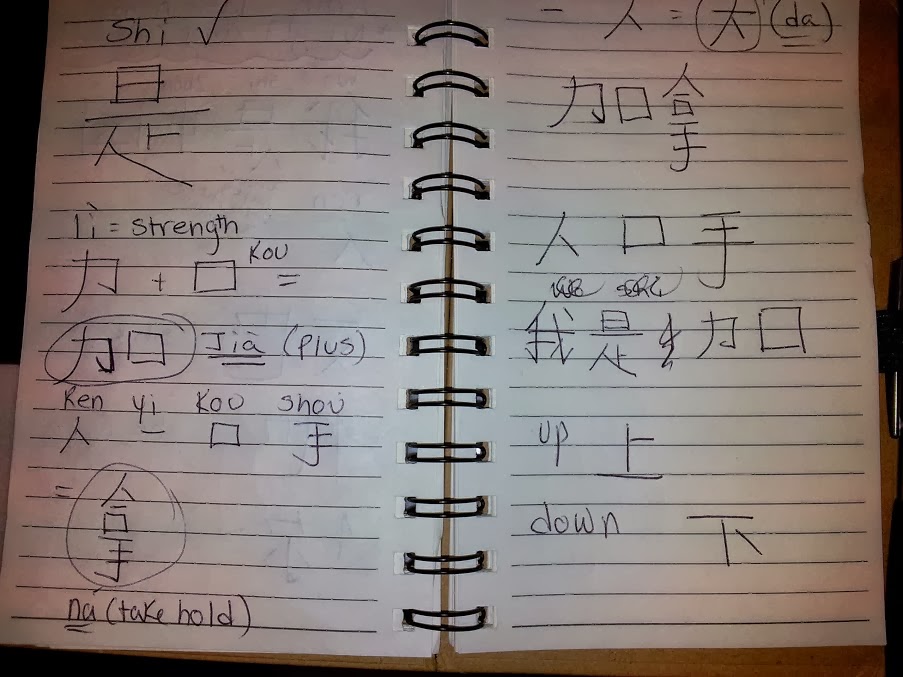 Shi √
是
Lì = strength
力 + 口 kou =
力口 Jià (plus)
Ken yi kou shou
人 一 口 手
= 拿
ná (take hold)
一 人 = 大 (da)
力口拿
人 口 手
我是 力口
up 上
down 下